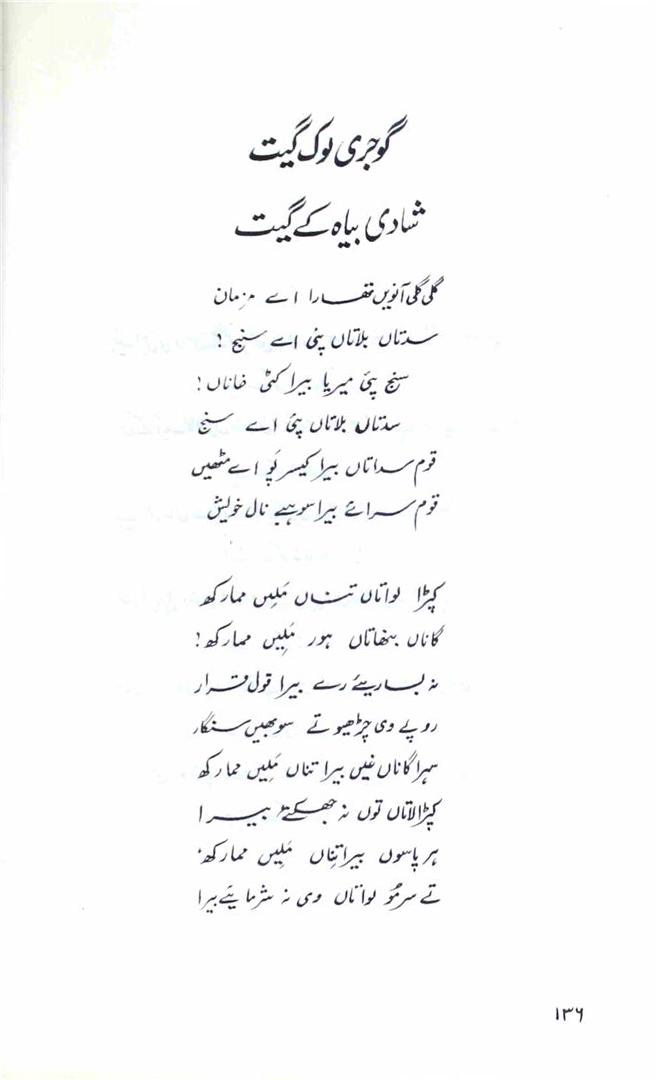 گوجری لوک گیت
شادی بیاہ کے گیت
گلی گلی آنویں تھارا اے مزمان
سدتاں بلاتاں پئی اے سنج !
سنج پئی میریا بیرا کئی خاناں !
سدتاں بلاتاں پئی اے سنج
قوم سداتاں بیرا کیسر پَو اے متھیں
قوم سرائے بیرا سوہیے نال خویش
کپڑا لواتاں تناں مَلیں ممارکھ
گاناں بنھاتاں ہور مَلیں ممارکھ !
نہ بساریئے رے بیرا قول قرار
روپے وی چڑھیو تے سوبھیں سنگار
سہرا گاناں غیں بیرا تناں مَلیں ممارکھ
کپڑا لاتاں توں نہ جھکئے بیرا
ہر پاسوں بیرا تِناں مَلیں ممارکھ
تے سرمو لواتاں وی نہ شرمایئے بیرا
۱۳۶